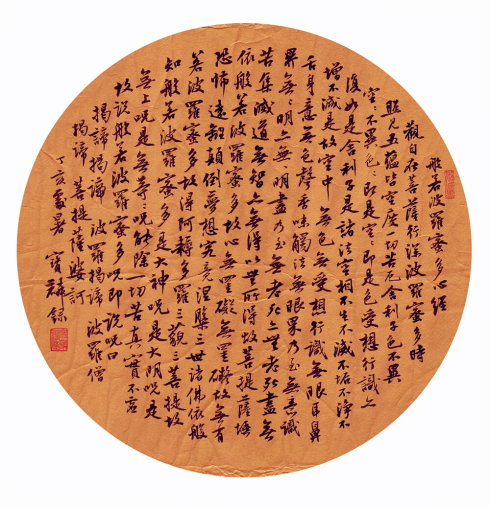 般若波羅蜜多心經
觀自在菩薩行深波羅蜜多時
照見五蘊皆空度一切苦厄舍利子色不異
空不異色〻即是空〻即是色受想行識亦
復如是舍利子是諸法空相不生不滅不垢不淨不
增不減是故空中無色無受想行識無眼耳鼻
舌身意無色聲香味觸法無眼界乃至無意識
界無〻明亦無明盡乃至無老死亦無老死盡無
苦集滅道無智亦無得以無所得故菩提薩埵
依般若波羅蜜多故心無罣礙無罣礙故無有
恐怖遠離顛倒夢想究竟涅槃三世諸佛依般
若波羅蜜多故得阿耨多羅三藐三菩提故
知般若波羅蜜多是大神咒是大明咒是
無上咒是無等咒能除一切苦真實不虛
故說般若波羅蜜多咒即說咒曰
揭諦揭諦 波羅揭諦 波羅僧
揭諦 菩提薩婆訶
丁亥處暑 寶 錄